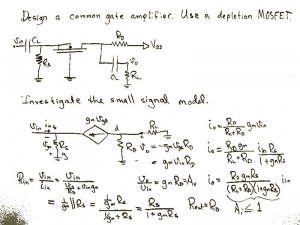 Design a common gate amplifier. Use a depletion MOSFET.
Vin C1 RD VDD
RS C2 VO RL
Investigate the small signal model.
Vin iin gmVin d RL io = RD/(RL+RD) gmVin
RS RD VO = -gmVgsRD io = RDgm/(RL+RD) iinRS/(1+gmRS)
= gmVinRD
Rin = Vin/iin = Vin/(Vin/RS + Vingm) VO/Vin = gmRD = Av io = RDgmRS/((RL+RD)(1+gmRS)) iin
= 1/gm || RS = 1/gm RS/(1/gm + RS) = RS/(1+gmRS) Rout = RD Ai ≤ 1